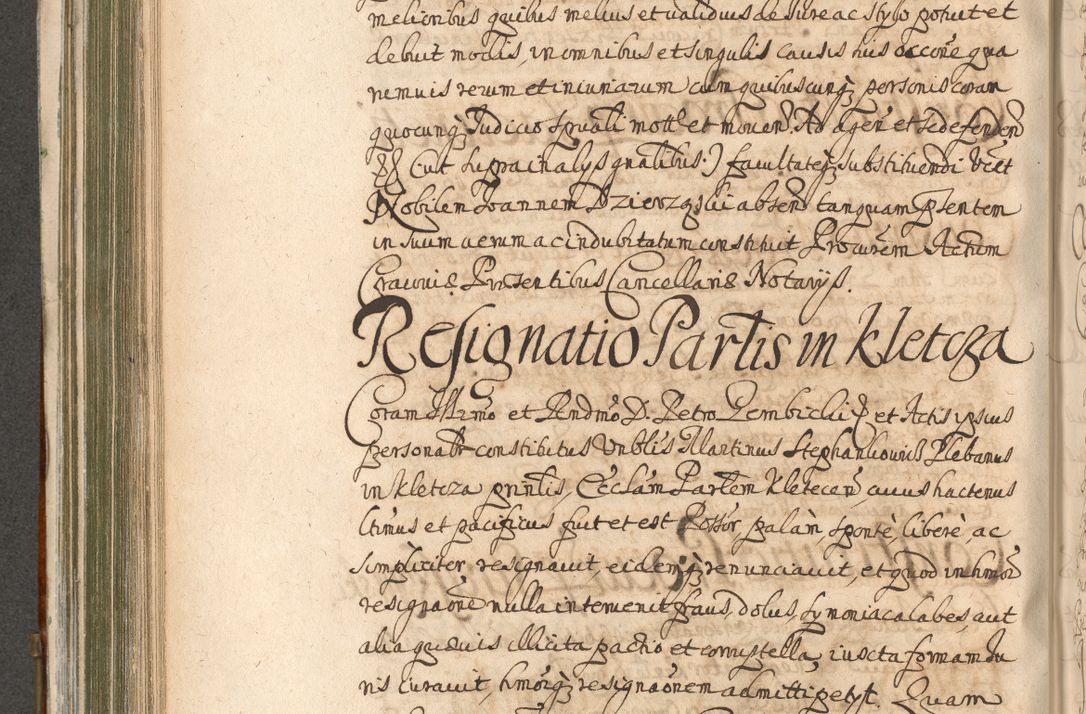 melioribus quibus melius et validius de Jure ac stylo potuit et
debuit modis, in omnibus et singulis causis suis occõne qua
nemuis rerum et iniuriarum cum quibuscunq; personis coram
quocunq; Judicio spũali mott̃ et mouen̄. Ad agen̄ et se defenden̄
Cũt supra in alys gnãlibus.) facultateq; substituendi Vẽlt
Nobilem Joannem Dzierzqski absen̄ tanquam p̃sentem
in suum verum ac indubitatum constituit Procurẽm Actum
Cracouiæ Præsentibus Cancellariæ Notarijs.
Resignatio Partis in Kletcza
Coram Illr̃mo et Rndmo D. Petro Gembicki et Actis ipsius
personalr̃ constitutus Vnblis Martinus Stephankouis Plebanus
in Kletcza prñtis, Ecclãm Partem Kletecen̄ cuius hactenus
ltimus et pacificus fuit et est Possor, palàm, spontè, liberè ac
simpliciter resignauit, eidemq; renunciauit, et quod in hmõi
resignaõne nulla interuenit fraus, dolus, symoniaca labes, aut
alia quæuis illicita pactio et corruptella, iuxta formam Iu
ris iurauit, hmõiq; resignaõnem admitti petyt. Quam